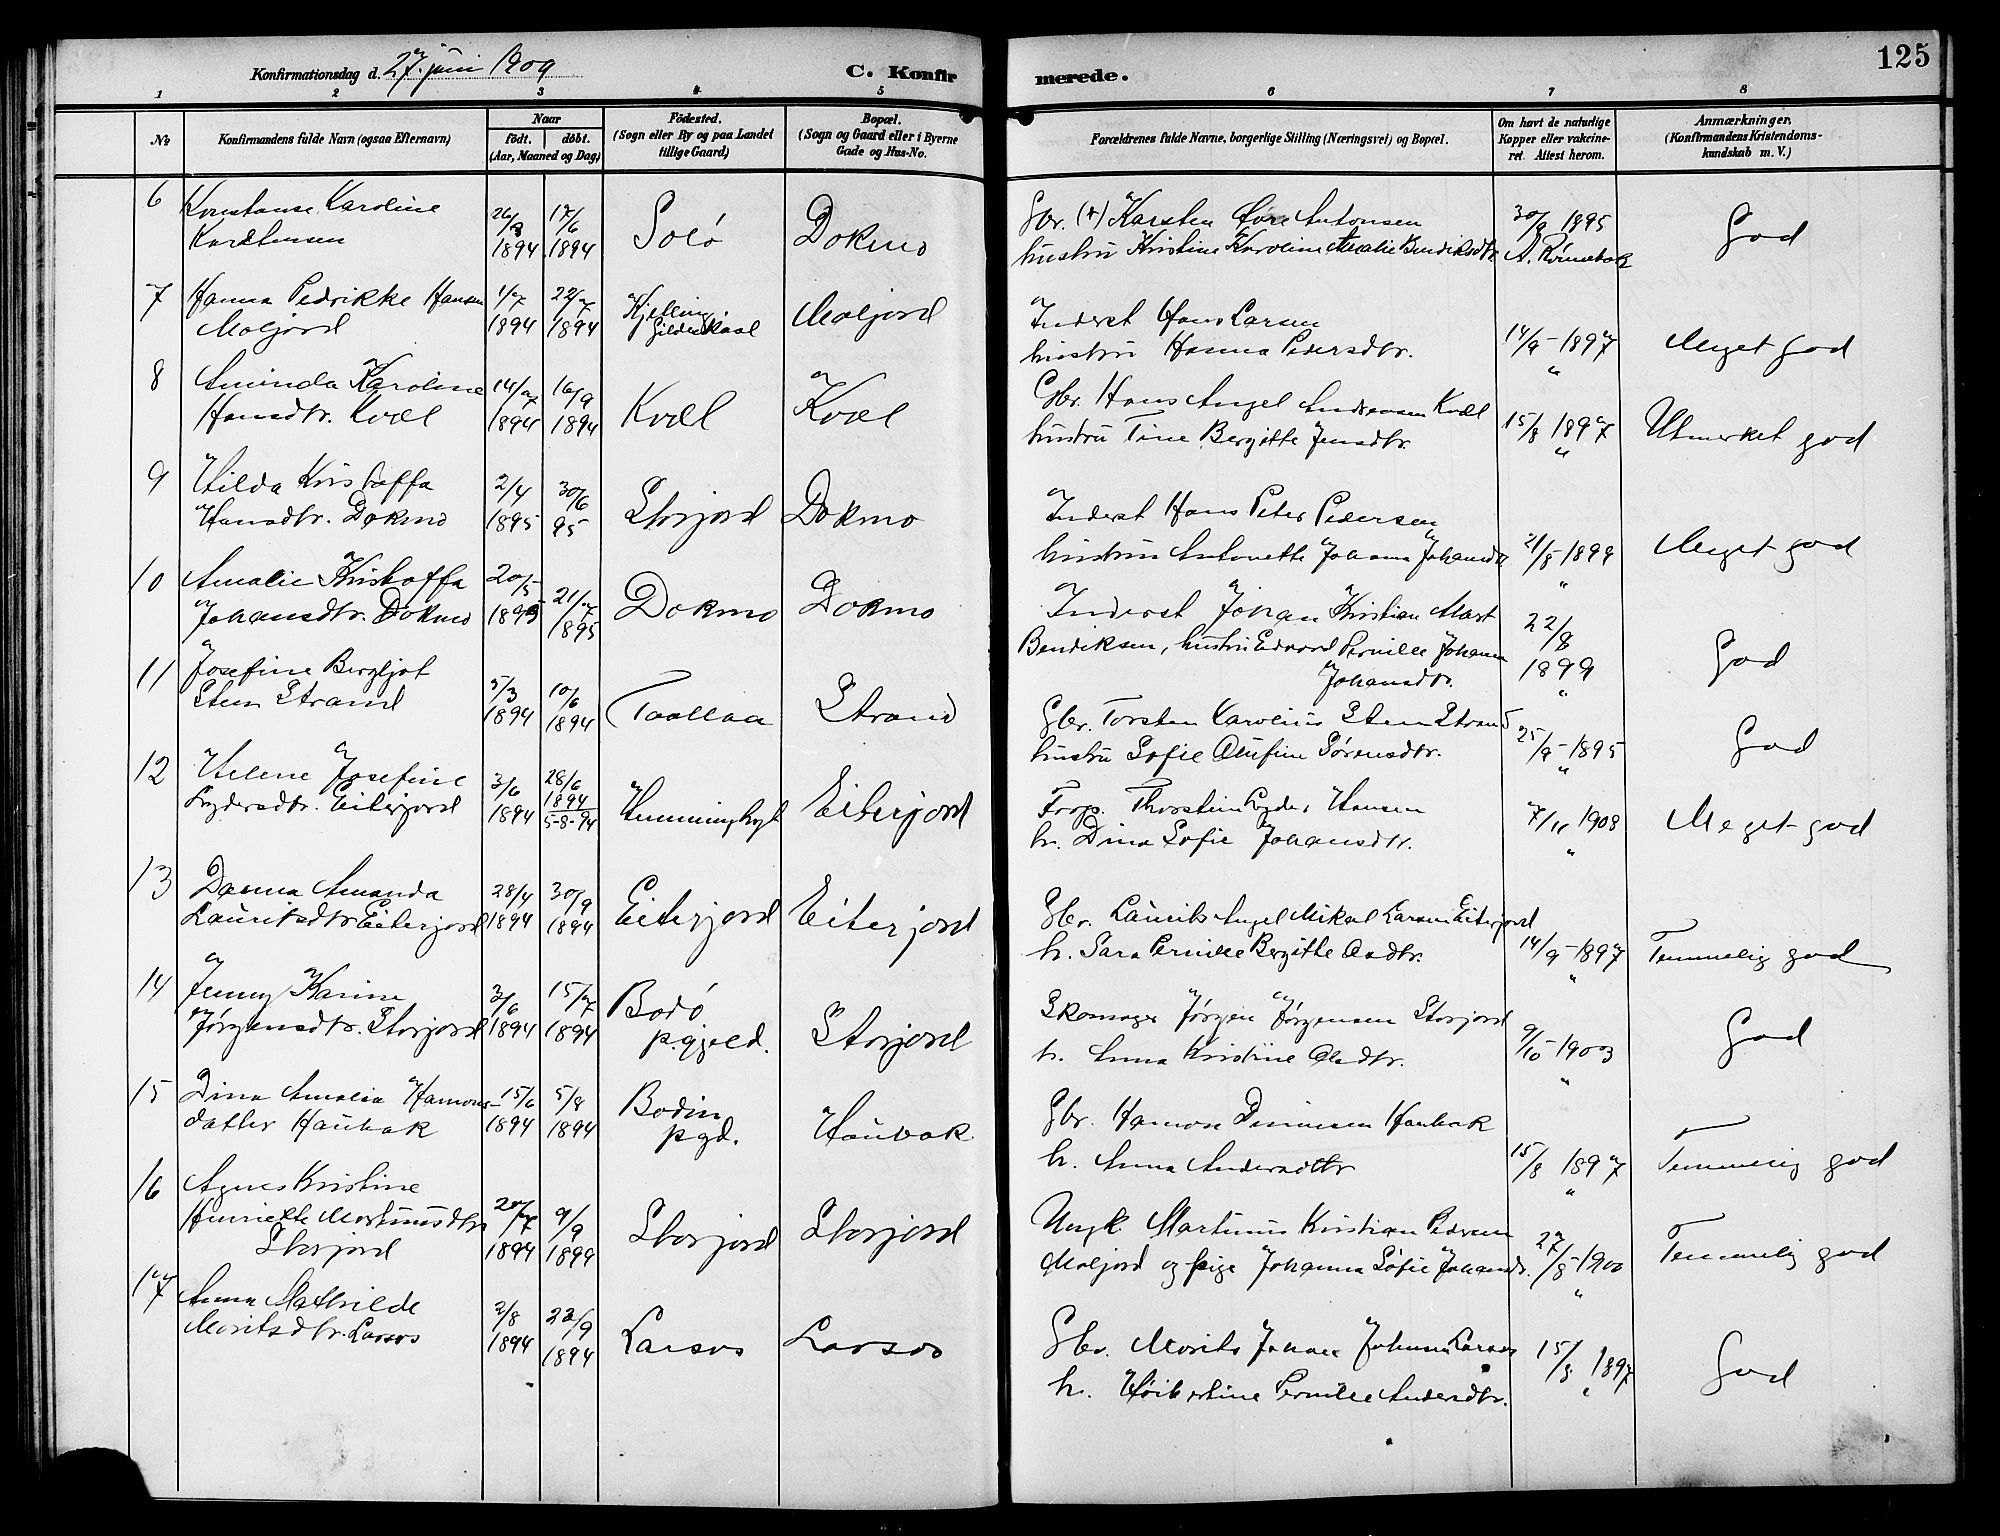 Konfirmationsdag d. 27. juni 1909
C. Konfirmerede.
125
1 2 3 4 5 6 7 8
No
Konfirmandens fulde Navn (ogsaa Efternavn)
Naar
födt. döbt.
(Aar, Maaned og Dag)
Födested.
(Sogn eller By og paa Landet
tillige Gaard)
Bopæl.
(Sogn og Gaard eller i Byerne
Gade og Hus-No.
Forældrenes fulde Navne, borgerlige Stilling (Næringsvei) og Bopæl.
Om havt de naturlige
Kopper eller vakcine-
ret. Attest herom.
Anmærkninger.
(Konfirmandens Kristendoms-
kundskab m. V.)
6 Konstanse Karoline 26/3 17/6 Gbr. (+) Karsten Antonsen 30/9 1895
Karstensen 1894 1894 Solö Dokmo hustru Kristine Karoline Amalie Bendiksdtr. God
7 Hanna Pedrikke Hansen 1/7 22/7 Kjelling, Inderst Hans Larsen
Moljord 1894 1894 Gildeskaal Moljord hustru Hanna Pedersdtr. 14/9-1897 Meget god
8 Aminda Karoline 14/7 16/9 Gbr. Hans Angel Andreassen Kvæl
Hansdtr. Kvæl 1894 1894 Kvæl Kvæl hustru Tine Bergitte Jensdtr. 15/8 1897 Utmerket god
9 Hilda Kristoffa 2/4 30/6 Inderst Hans Peter Pedersen
Hansdtr. Dokmo 1895 95 Storjord Dokmo hustru Antonette Johanna Johansdtr 21/8-1899 Meget god
10 Amalie Kristoffa 20/5 21/7 Inderst Johan Kristian Mart
Johansdtr. Dokmo 1895 1895 Dokmo Dokmo Bendiksen, hustru Edvard Pernille Johanna 22/8
Johansdtr. 1899 God
11 Josefine Bergljot 5/3 10/6
Sten Strand 1894 1894 Taallaa Strand Gbr. Torsten Karolius Sten Strand
hustru Sofie Olufine Sørensdtr. 25/9-1895 God
12 Helene Josefine 3/6 28/6 1894
Lydersdtr. Eiterjord 1894 5-8-94 Eiterjord Thorstein Lyder Hansen 7/11 1908
h. Dina Sofie Johansdtr. Meget god
13 Danna Amanda 28/4 30/9
Lauritsdtr Eiterjord 1894 1894 Eiterjord Eiterjord Gbr. Laurits Angel Mikal Larsen Eiterjord
h. Sara Pernille Bergitte Oladtr. 14/9-1897 Temmelig god
14 Jenny Karine 3/6 15/7 Bodö Skomager Jørgen Jørgensen Storjord
Jørgensdtr. Storjord 1894 1894 p.gjeld. Storjord h. Anna Kristine Oladtr. 9/10-1903 God
15 Dina Amalia Hamons- 15/6 5/8 Bodin Gbr. Hamon Haubak
datter Haubak 1894 1894 pgd. Haubak h. Anna Andersdtr 15/8 1897 Temmelig god
16 Agnes Kristine 20/7 9/9 Ungk. Martinus Kristian Pedersen
Henriette Martinusdtr
Storjord 1894 1894 Storjord Storjord Moljord og pige Johanna Sofie Johansdtr. 27/8-1900 Temmelig god
17 Anna Mathilde 2/8 23/9
Moritsdtr. Larsos 1894 1894 Larsos Larsos Gbr. Morits Johan Johnsen Larsos 15/8 1897
h. Pernille Andersdtr. God